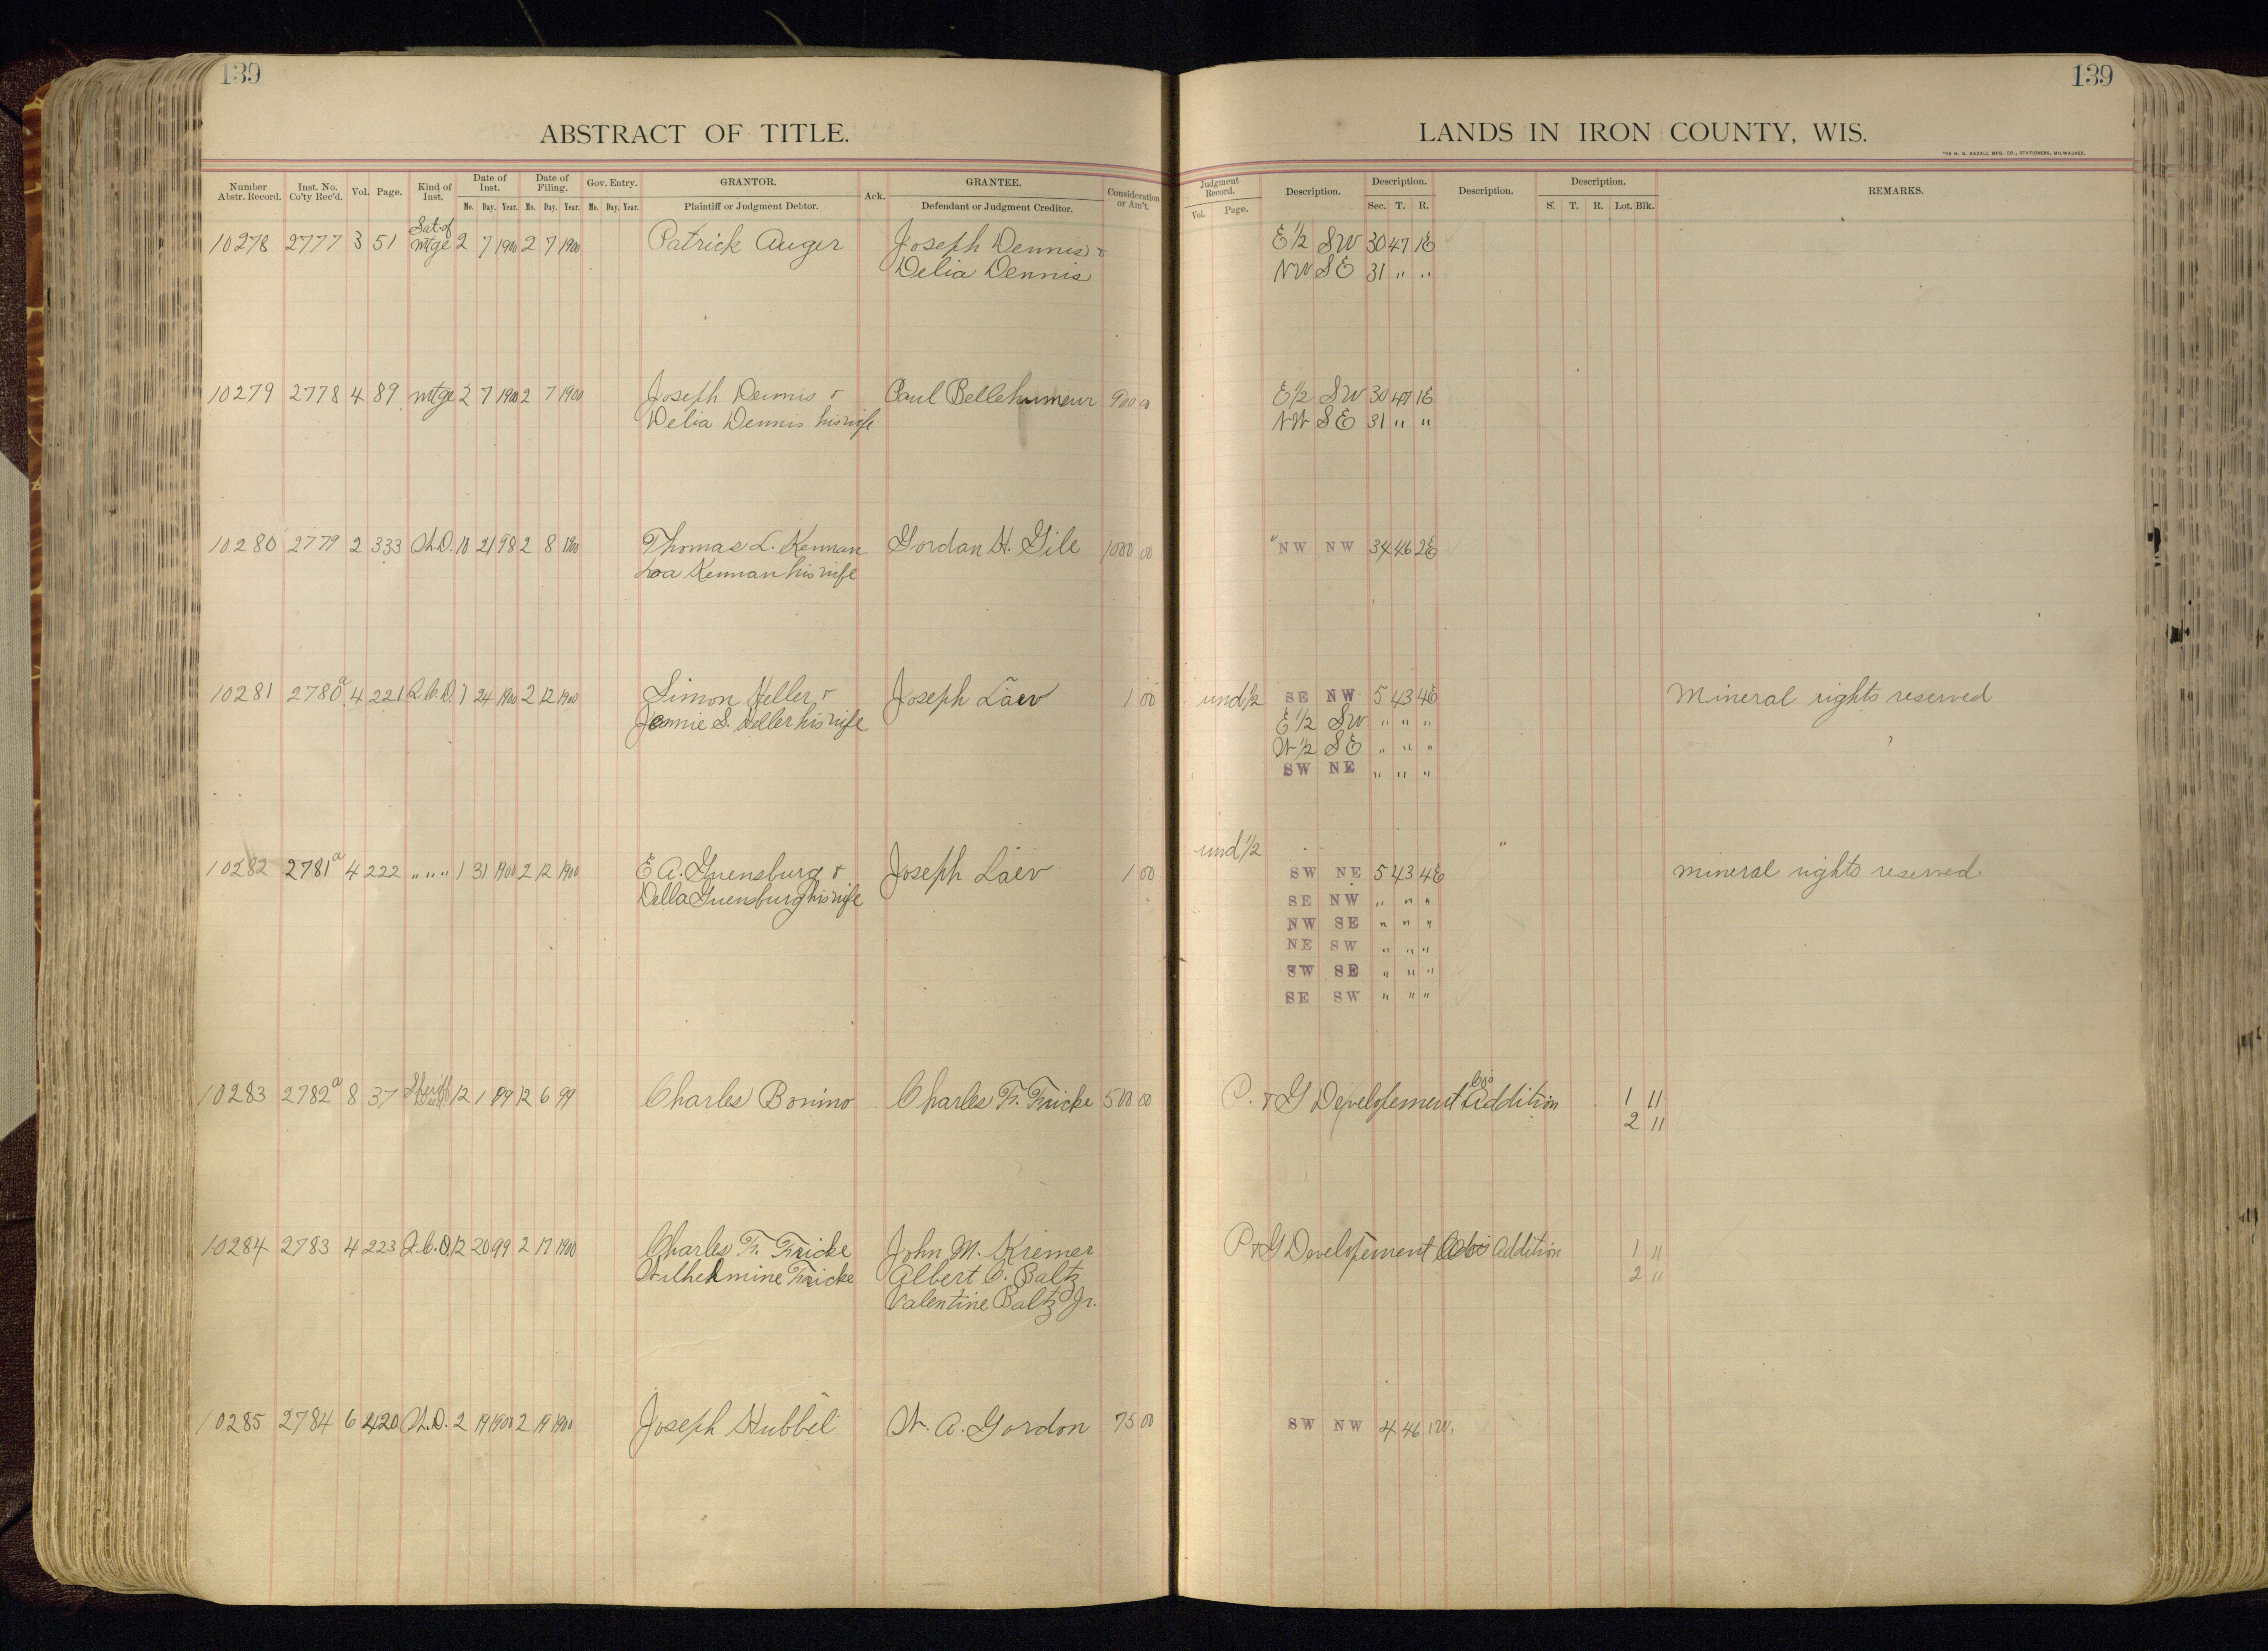 139
139
ABSTRACT OF TITLE.
LANDS IN IRON COUNTY, WIS.
THE H. G. RAZALL MFG. CO., STATIONERS, MILWAUKEE.
Number Abstr. Record. Inst. No. Co'ty Rec'd. Vol. Page. Kind of Inst. Date of Inst. Mo. Day. Year. Date of Filing. Mo. Day. Year. Gov. Entry. Mo. Day. Year. GRANTOR. Plaintiff or Judgment Debtor. Ack. GRANTEE. Defendant or Judgment Creditor. Consideration or Am't. Judgment Record. Vol. Page. Description. Description. Sec. T. R. Description. Description. S. T. R. Lot. Blk. REMARKS.
10278 2777 3 51 Sat of Mtge 2 7 1900 2 7 1900 Patrick Auger Joseph Dennis & E 1/2 SW 30 47 1E
Delia Dennis NW SE 31 " "
10279 2778 4 89 Mtge 2 7 1900 2 7 1900 Joseph Dennis & Paul Bellehumeur 900 00 E 1/2 SW 30 47 1E
Delia Dennis his wife NW SE 31 " "
10280 2779 2 333 W.D. 10 21 98 2 8 1900 Thomas L. Kennan Gordan H. Gile 1000 00 NW NW 34 46 2E
Kennan his wife
10281 2780a 4 221 Q.C.D. 1 24 1900 2 12 1900 Simon Heller & Joseph Laev 1 00 und 1/2 SE NW 5 43 4E Mineral rights reserved
Jennie S. Heller his wife E 1/2 SW " " "
W 1/2 SE " " "
SW NE " " "
10282 2781a 4 222 " " " 1 31 1900 2 12 1900 E. A. Guensburg & Joseph Laev 1 00 und 1/2 SW NE 5 43 4E mineral rights reserved.
Della Guensburg his wife SE NW " " "
NW SE " " "
NE SW " " "
SW SE " " "
SE SW " " "
10283 2782a 8 37 Sheriff Deed 12 1 99 12 6 99 Charles Bonino Charles Fr. Fricke 500 00 P. & G Developement Co's Addition 1 11
2 11
10284 2783 4 223 Q.C.D. 12 20 99 2 17 1900 Charles Fr. Fricke John M. Kremer P & G Developement Co's Addition 1 11
Wilhelmine Fricke Albert C. Baltz 2 11
Valentine Baltz Jr.
10285 2784 6 420 W.D. 2 19 1900 2 19 1900 Joseph Hubbel W. A. Gordon 75 00 SW NW 4 46 1W.